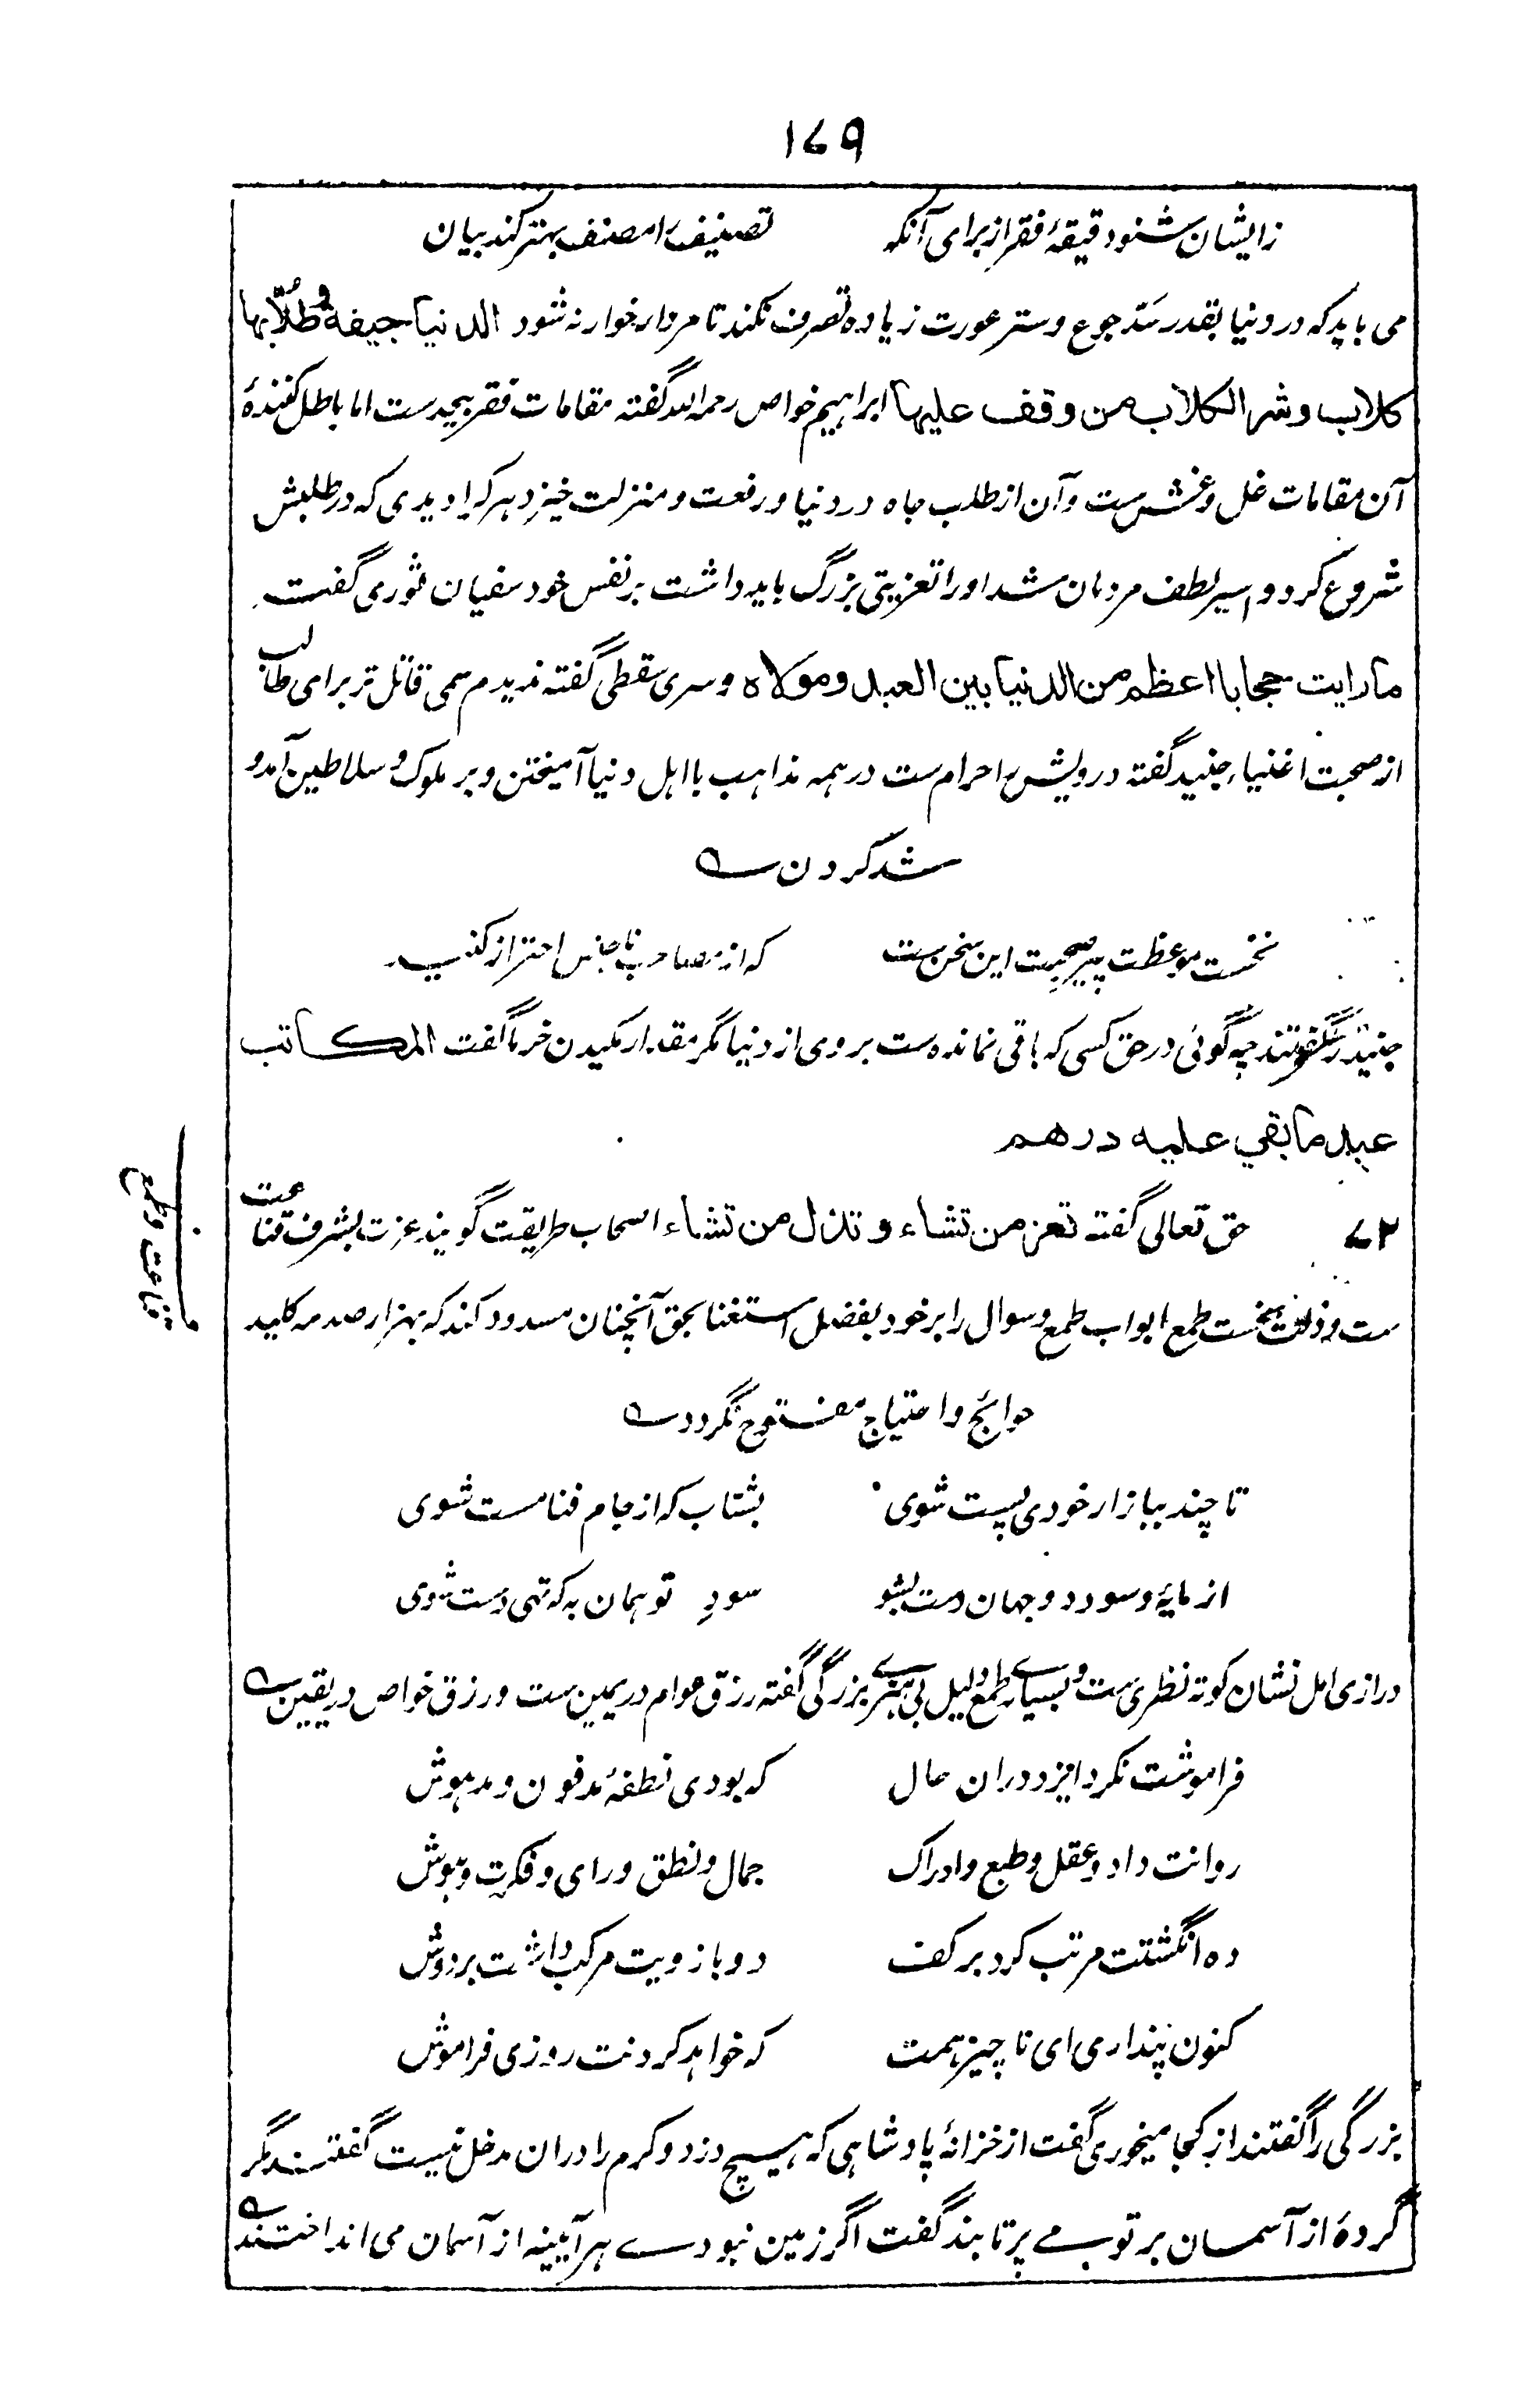 ۱۷۹
زایشان شنو دقیقهٔ فقر از برای آنکه تصنیف را مصنف بهتر کند بیان
می باید که در دنیا بقدر سد جوع و ستر عورت زیاده تصرف نکند تا مردار خوار نه شود الدنیا جیفة و طلابها
کلاب و شر الکلاب من وقف علیها ابراهیم خواص رحمه الله گفته مقامات فقر بیحدست اما باطل کنندهٔ
آن مقامات غل و غشست و آن از طلب جاه در دنیا و رفعت و منزلت خیزد هر کرا دیدی که در طلبش
شروع کرد و اسیر لطف مردمان شد او را تعزیتی بزرگ باید داشت بر نفس خود سفیان ثوری گفت
ما رایت حجابا اعظم من الدنیا بین العبد و مولاه و سری سقطی گفته ندیدم سمی قاتل تر برای طالب
از صحبت اغنیا، جنید گفته درویش را حرام ست در همه مذاهب با اهل دنیا آمیختن و بر ملوک و سلاطین آمد و
شد کردن
نخست موعظت پیر صحبت این سخن ست که از مصاحب ناجنس احتراز کنید
جنید را گفتند چه گوئی در حق کسی که باقی نمانده ست بروی از دنیا مگر مقدار مکیدن خرما گفت المکاتب
عبد ما بقی علیه درهم
۷۲ حق تعالی گفته تعز من تشاء و تذل من تشاء اصحاب طریقت گویند عزت بشرف قناعت
ست و ذلت بخست طمع ابواب طمع و سوال را بر خود بفضل استغنا بحق آنچنان مسدود کند که بهزار صدمه کلید
حوائج و احتیاج مفتوح نگردد
قناعت و طمع
تا چند ببازار خودی پست شوی بشتاب که از جام فنا مست شوی
از مایهٔ و سود دو جهان دست بشو سودِ تو همان به که تهی دست شوی
درازی امل نشان کوته نظری ست و بسیاری طمع دلیل بی هنری بزرگی گفته رزق عوام در یمین ست و رزق خواص در یقین
فراموشت نکرد ایزد دران حال که بودی نطفهٔ مدفون و مدهوش
روانت داد و عقل و طبع و ادراک جمال و نطق و رای و فکرت و هوش
ده انگشتت مرتب کرد بر کف دو بازویت مرکب داشت بر دوش
کنون پنداری ای ناچیز همت که خواهد کردنت روزی فراموش
بزرگی را گفتند از کجا میخوری گفت از خزانهٔ پادشاهی که هیچ دزد و کرم را دران مدخل نیست گفتند مگر
گردهٔ از آسمان بر تو می پرتابند گفت اگر زمین نبودے هر آیینه از آسمان می انداختند